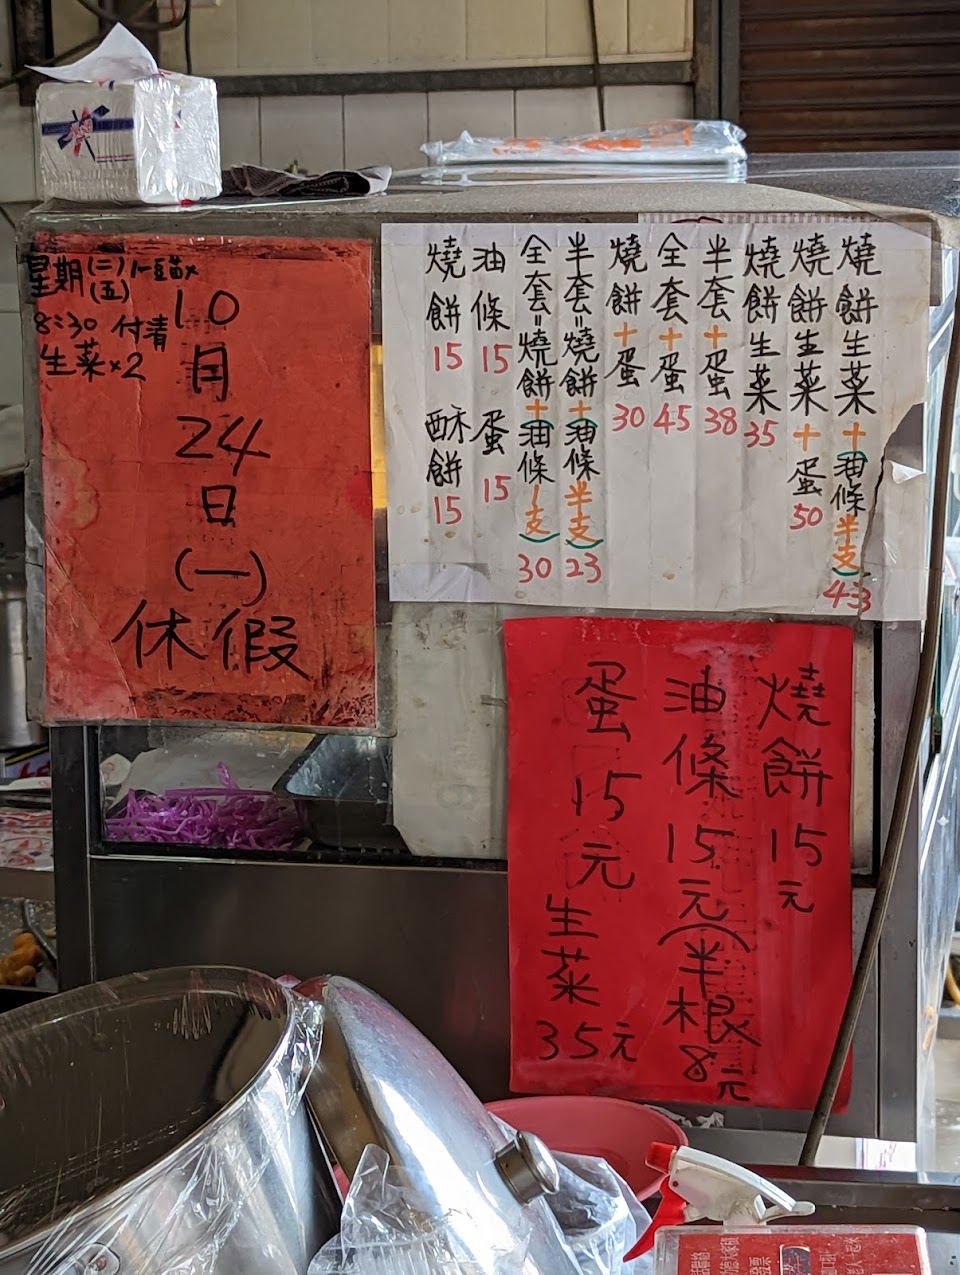 星期(二)
(五)
8:30 付清
生菜x2
10
月
24
日
(一)
休假
燒餅生菜+油條半支 43
燒餅生菜+蛋 50
燒餅生菜 35
半套+蛋 38
全套+蛋 45
燒餅+蛋 30
半套=燒餅+油條半支 23
全套=燒餅+油條1支 30
油條 15 蛋 15
燒餅 15 酥餅 15
燒餅 15元
油條 15元(半根8元
蛋 15元
生菜 35元